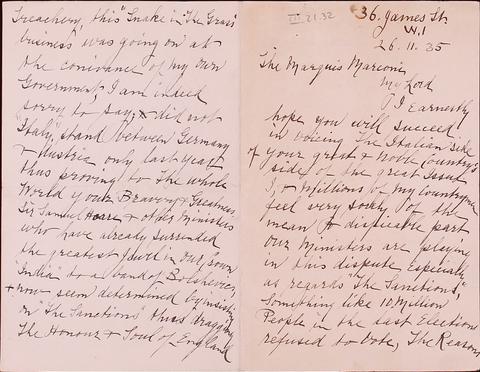 36. James St.
W.1
26.11.35
The Marquis Marconi
My Lord
I Earnestly
hope you will succeed
in voicing The Italian side
of your great & Noble Country's
side of the great Issue
I, & Millions of my Countrymen
feel very sorry of the
mean & dispicable part
Our Ministers are playing
in this dispute especially
as regards "The Sanctions,"
Something like 10, Million
People, in the last Elections
refused to Vote, The Reasons
III.21.32
Treachery, this "Snake in The Grass"
business was going on at
the conivance of my Own
Government, I am indeed
sorry to say, & did not
Italy, stand between Germany
& Austria only last year
thus proving to The whole
World your Bravery & Greatness,
Sir Samuel Hoare & other Ministers
who have already surrended
the greatest Jewel in Our Crown
"India" to a band of Bolshevics,
& now seem determined by insisting
on "The Sanctions" thus dragging
The Honour & Soul of England